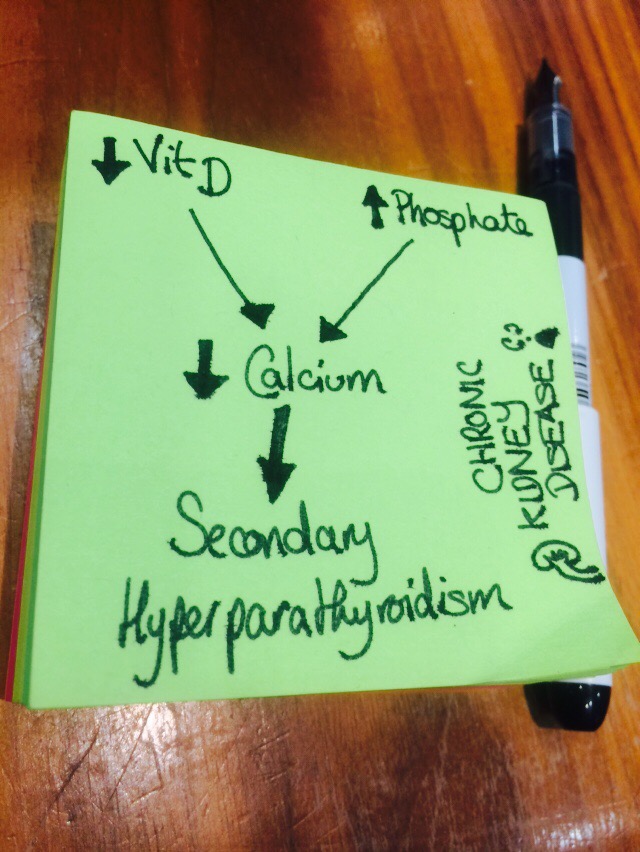 ↓ Vit D
↑ Phosphate
↓ Calcium
Secondary
Hyperparathyroidism
CHRONIC
KIDNEY
DISEASE